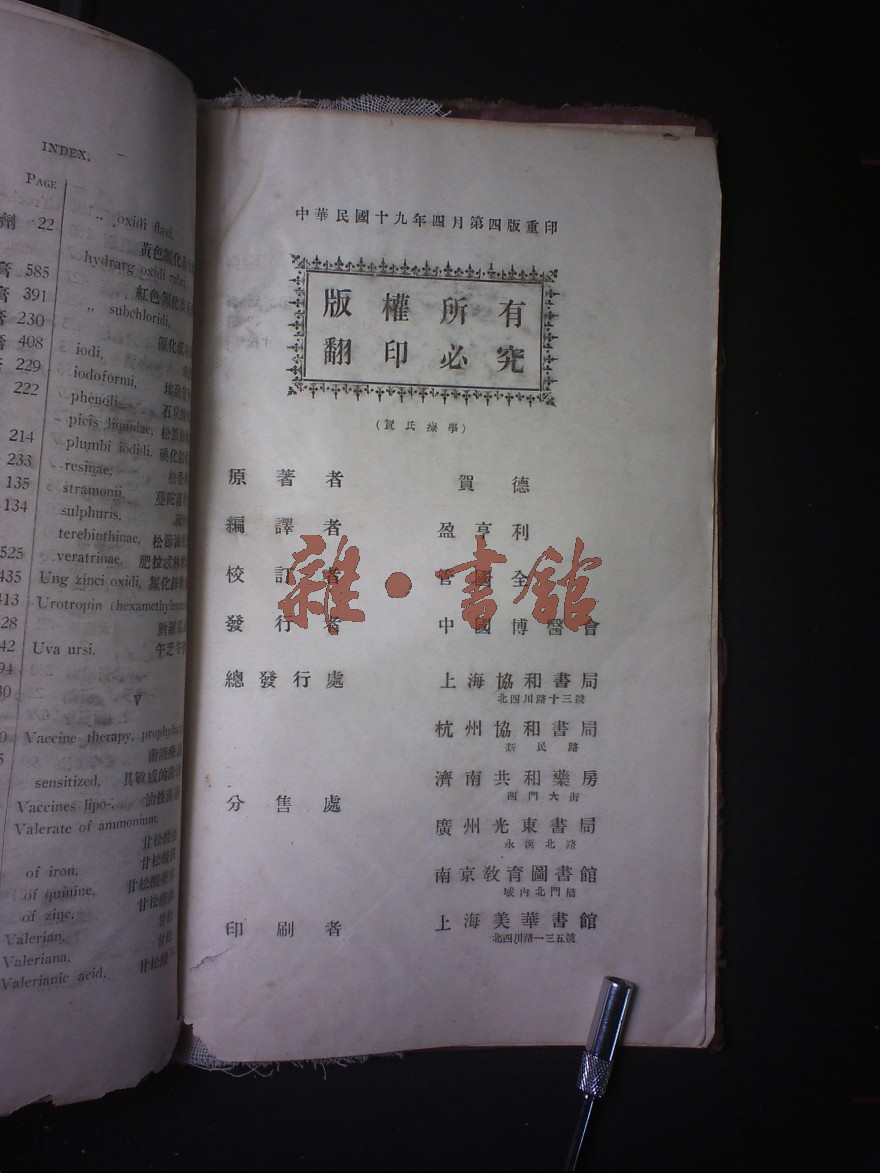 INDEX.
PAGE
劑 22
膏 585
膏 391
膏 230
膏 408
膏 229
222
214
233
135
134
525
435
413
428
42
94
30
„ oxidi flavi,
hydrarg oxidi rubri,
„ subchloridi,
iodi,
iodoformi,
phenolis,
picis liquidae,
plumbi iodidi,
resinae,
stramonii,
sulphuris,
terebinthinae,
veratrinae,
Ung zinci oxidi,
Urotropin
Uva ursi.
V
Vaccine therapy,
sensitized,
Vaccines lipo-,
Valerate of ammonium,
of iron,
of quinine,
of zinc,
Valerian,
Valeriana,
Valerianic acid,
中華民國十九年四月第四版重印
版權所有
翻印必究
(賀氏療學)
原著者 賀德
編譯者 盈亨利
校訂者 國全
發行者 中國博醫會
總發行處 上海協和書局
北四川路十三號
杭州協和書局
新民路
濟南共和藥房
西門大街
分售處
廣州光東書局
永漢北路
南京教育圖書館
城內北門橋
印刷者 上海美華書館
北四川路一三五號
雜·書館